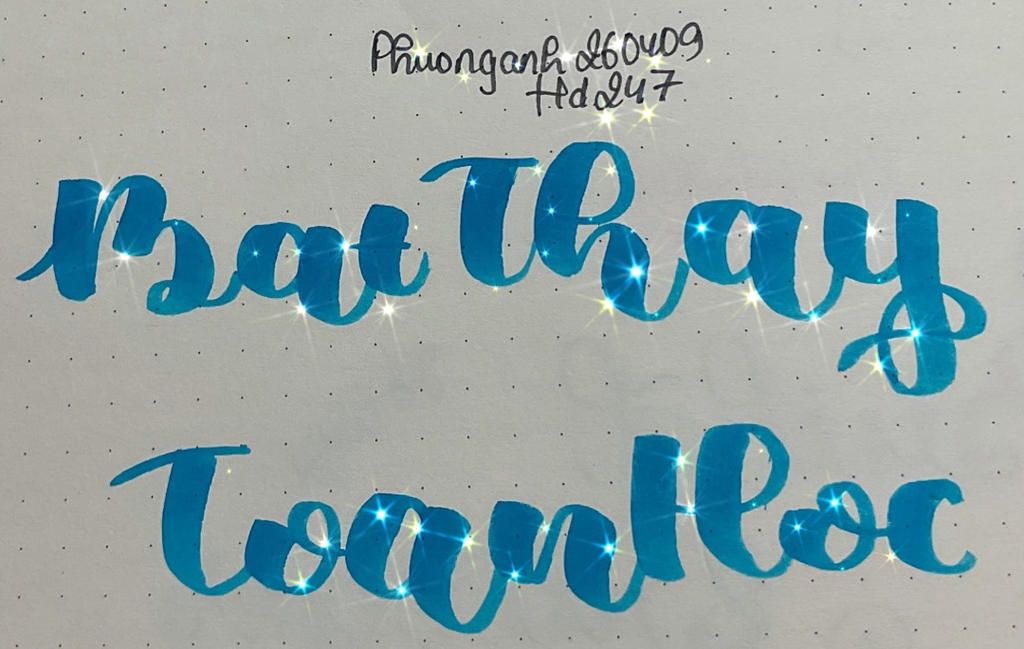 Phuonganh 260409
Hd247
Bat Thay
Toan Hoc